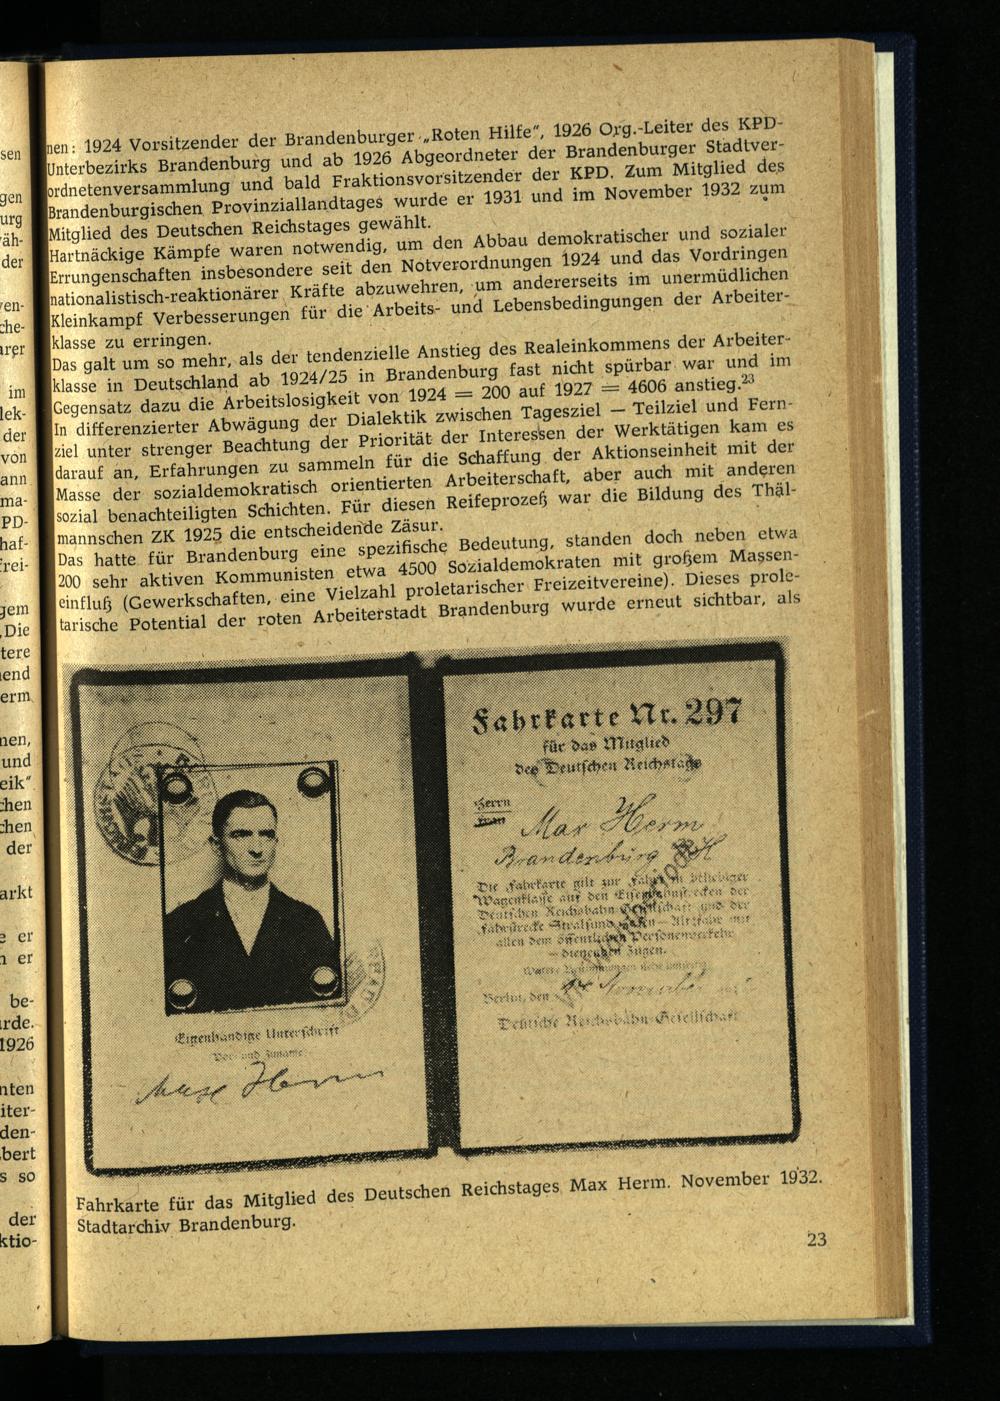 nen: 1924 Vorsitzender der Brandenburger „Roten Hilfe“, 1926 Org.-Leiter des KPD-
Unterbezirks Brandenburg und ab 1926 Abgeordneter der Brandenburger Stadtver-
ordnetenversammlung und bald Fraktionsvorsitzender der KPD. Zum Mitglied des
Brandenburgischen Provinziallandtages wurde er 1931 und im November 1932 zum
Mitglied des Deutschen Reichstages gewählt.
Hartnäckige Kämpfe waren notwendig, um den Abbau demokratischer und sozialer
Errungenschaften insbesondere seit den Notverordnungen 1924 und das Vordringen
nationalistisch-reaktionärer Kräfte abzuwehren, um andererseits im unermüdlichen
Kleinkampf Verbesserungen für die Arbeits- und Lebensbedingungen der Arbeiter-
klasse zu erringen.
Das galt um so mehr, als der tendenzielle Anstieg des Realeinkommens der Arbeiter-
klasse in Deutschland ab 1924/25 in Brandenburg fast nicht spürbar war und im
Gegensatz dazu die Arbeitslosigkeit von 1924 = 200 auf 1927 = 4606 anstieg.²³
In differenzierter Abwägung der Dialektik zwischen Tagesziel — Teilziel und Fern-
ziel unter strenger Beachtung der Priorität der Interessen der Werktätigen kam es
darauf an, Erfahrungen zu sammeln für die Schaffung der Aktionseinheit mit der
Masse der sozialdemokratisch orientierten Arbeiterschaft, aber auch mit anderen
sozial benachteiligten Schichten. Für diesen Reifeprozeß war die Bildung des Thäl-
mannschen ZK 1925 die entscheidende Zäsur.
Das hatte für Brandenburg eine spezifische Bedeutung, standen doch neben etwa
200 sehr aktiven Kommunisten etwa 4500 Sozialdemokraten mit großem Massen-
einfluß (Gewerkschaften, eine Vielzahl proletarischer Freizeitvereine). Dieses prole-
tarische Potential der roten Arbeiterstadt Brandenburg wurde erneut sichtbar, als
Eigenhändige Unterschrift
Vor- und Zuname
Max Herm
Fahrkarte Nr. 297
für das Mitglied
des Deutschen Reichstags
Herrn
Frau
Max Herm
Brandenburg
Die Fahrkarte gilt zur Fahrt in beliebiger
Wagenklasse auf den Eisenbahnstrecken der
Deutschen Reichsbahn-Gesellschaft und der
Fahrstrecke Stralsund
allen dem öffentlichen Personenverkehr
dienenden Zügen.
Berlin, den November
Deutsche Reichsbahn-Gesellschaft
Fahrkarte für das Mitglied des Deutschen Reichstages Max Herm. November 1932.
Stadtarchiv Brandenburg.
23